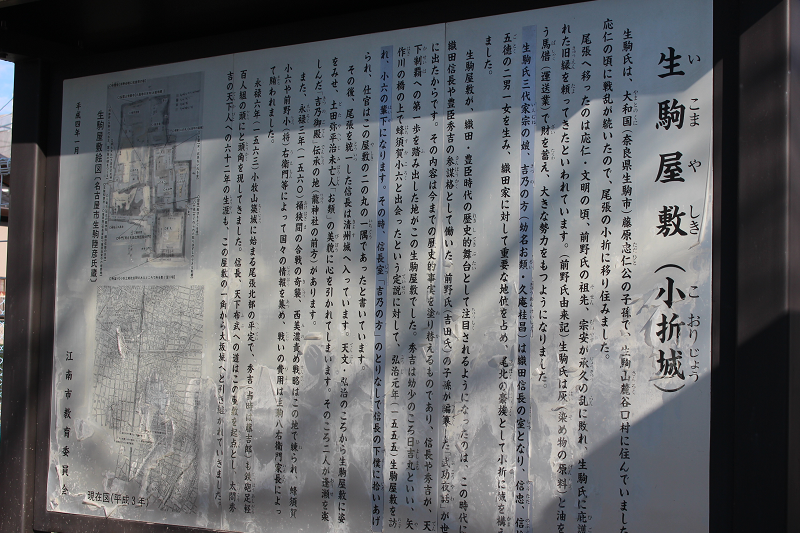 生駒屋敷(小折城)
いこまやしき こおりじょう
生駒氏は、大和国(奈良県生駒市)藤原忠仁公の子孫で、生駒山麓谷口村に住んでいました
応仁の頃に戦乱が続いたので、尾張の小折に移り住みました。
尾張へ移ったのは応仁・文明の頃、前野氏の祖先、宗安が承久の乱に敗れ、生駒氏に庇護
れた旧縁を頼ってきたといわれています。(前野氏由来記)生駒氏は灰(染め物の原料)と油を
う馬借(運送業)で財を蓄え、大きな勢力をもつようになりました。
生駒氏三代家宗の娘、吉乃の方(幼名お類・久庵桂昌)は織田信長の室となり、信忠、信
五徳の二男一女を生み、織田家に対して重要な地位を占め、尾北の豪族として小折に城を構え
ました。
生駒屋敷が、織田・豊臣時代の歴史的舞台として注目されるようになったのは、この時代に
織田信長や豊臣秀吉の参謀格として働いた、前野氏(吉田氏)の子孫が編纂した「武功夜話」が世
に出たからです。その内容は今までの歴史的事実を塗り替えるものであり、信長や秀吉が、天
下制覇への第一歩を踏み出した地がこの生駒屋敷でした。秀吉は幼少のころ日吉丸といい、矢
作川の橋の上で蜂須賀小六と出会ったという定説に対して、弘治元年(一五五五)生駒屋敷を訪
れ、小六の輩下になります。その時、信長室「吉乃の方」のとりなしで信長の下僕に拾いあげ
られ、仕官はこの屋敷の二の丸の一隅であったと書いています。
その後、尾張を統一した信長は清洲城へ入っています。天文・弘治のころから生駒屋敷に姿
をみせ、土田弥平治未亡人「お類」の美貌に心を引かれてしまいます。そのころ二人が逢瀬を楽
しんだ「吉乃御殿」伝承の地(龍神社の前方)があります。
また、永禄三年(一五六〇)桶狭間の合戦の奇襲、西美濃責めの戦略はこの地で練られ、蜂須賀
小六や前野小(将)右衛門等によって国々の情報を集め、戦いの費用は生駒八右衛門家長によっ
て賄われました。
永禄六年(一五六三)小牧山築城に始まる尾張北部の平定で、秀吉(当時は藤吉郎)も鉄砲足軽
百人組の頭にと頭角を現してきました。信長、天下布武への道はこの屋敷を起点とし、太閤秀
吉の天下人への六十二年の生涯も、この屋敷の一角から大坂城へと引き継がれていきました。
生駒屋敷絵図(名古屋市生駒陸彦氏蔵)
平成四年一月
現在図(平成3年)
江南市教育委員会